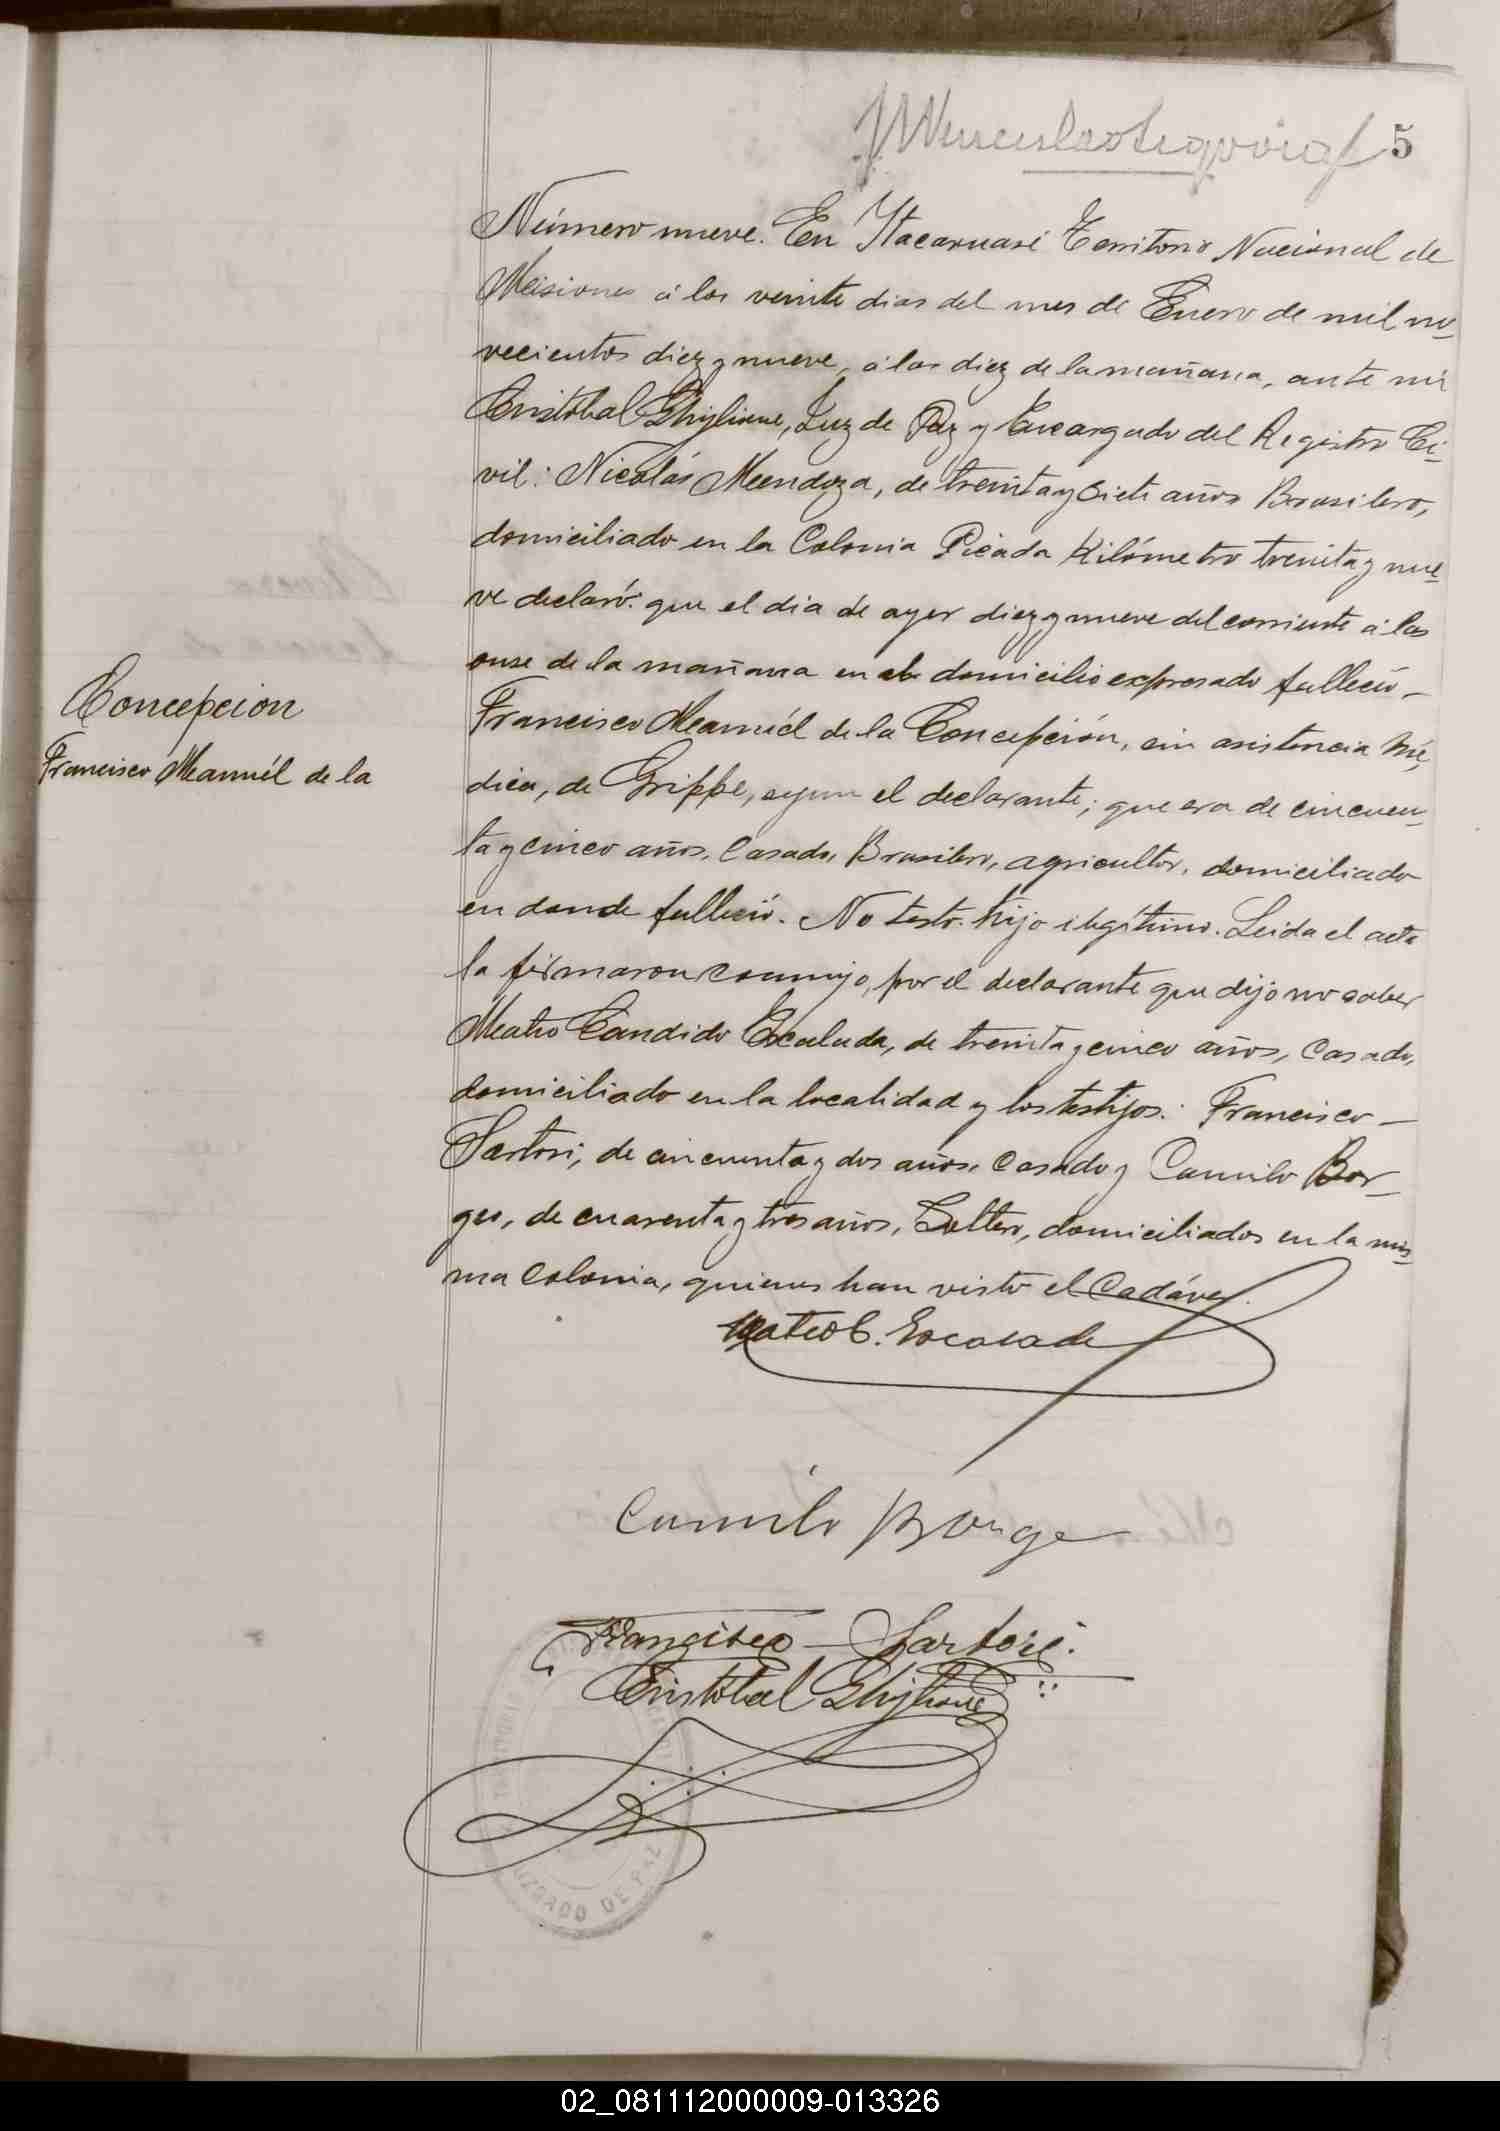 5
Número nueve. En Itacaruaré Territorio Nacional de
Misiones á los veinte dias del mes de Enero de mil no-
vecientos diez y nueve, á las diez de la mañana, ante mi
Cristóbal Ghiglione, Juez de Paz y Encargado del Registro Ci-
vil: Nicolás Mendoza, de treinta y siete años Brasilero,
domiciliado en la Colonia Picada Kilómetro treinta y nue-
ve declaró: que el dia de ayer diez y nueve del corriente á las
onse de la mañana en el domicilio expresado falleció -
Francisco Manuél de la Concepción, sin asistencia mé-
dica, de Grippe, segun el declarante; que era de cincuen-
ta y cinco años, casado, Brasilero, agricultor, domiciliado
en donde falleció. No testó. hijo ilegítimo. Leida el acta
la firmaron conmigo, por el declarante que dijo no saber
Mateo Cándido Escalada, de treinta y cinco años, casado,
domiciliado en la localidad y los testigos: Francisco -
Sartori, de cincuenta y dos años, casado y Camilo Bor-
ges, de cuarenta y tres años, Soltero, domiciliados en la mis-
ma colonia, quienes han visto el Cadáver.
Concepcion
Francisco Manuél de la
Mateo C. Escalada
Camilo Borge
Francisco Sartori
Cristóbal Ghiglione
JUZGADO DE PAZ
02_081112000009-013326